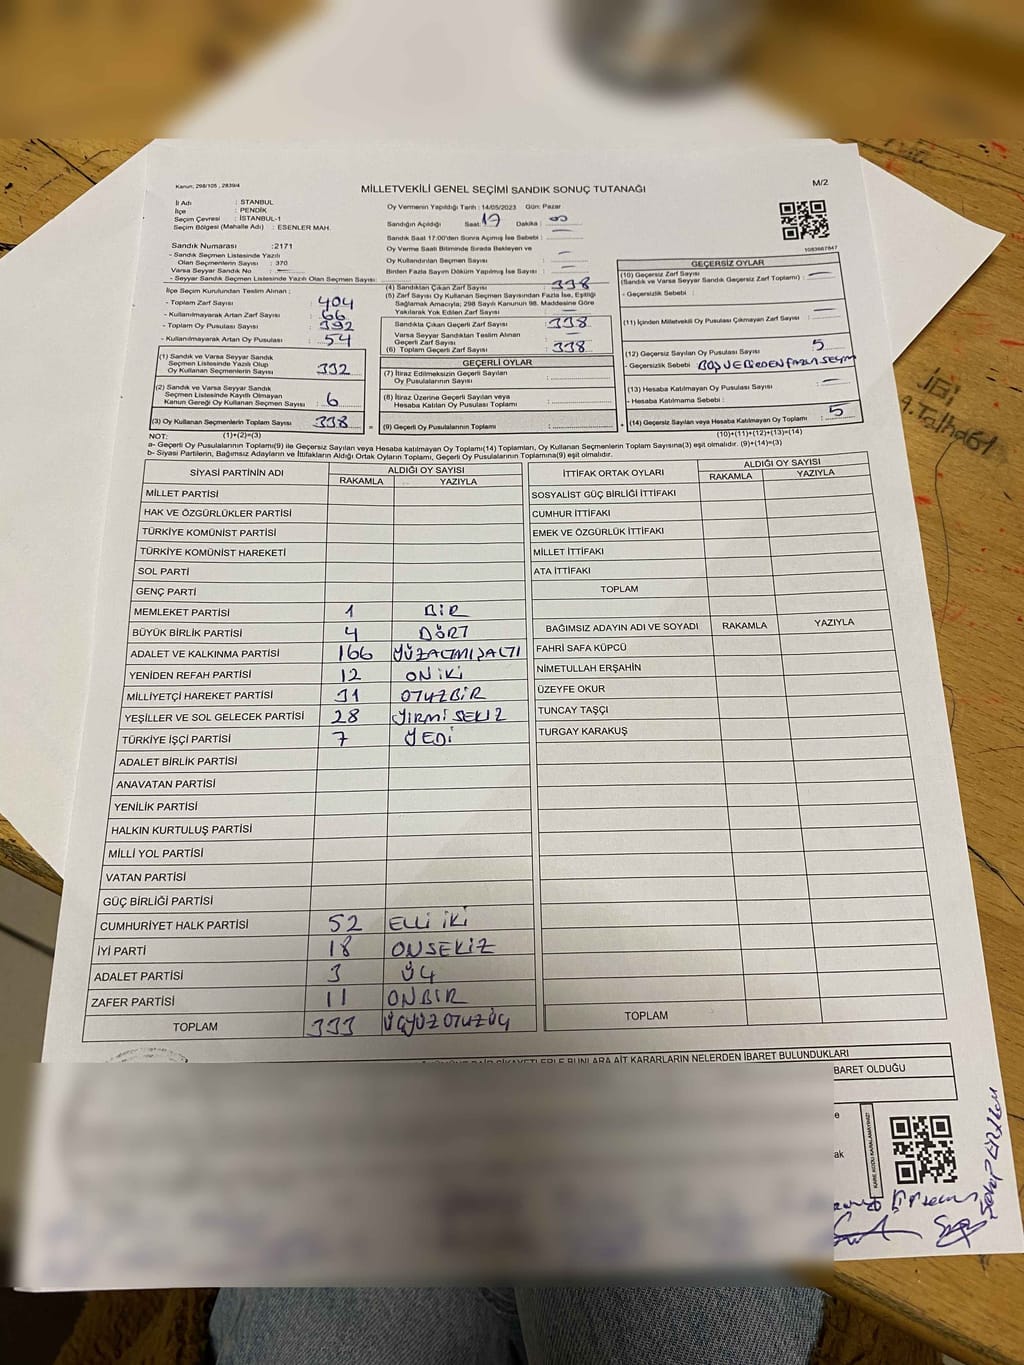 Kanun, 298/105 , 2839/4
MİLLETVEKİLİ GENEL SEÇİMİ SANDIK SONUÇ TUTANAĞI
M/2
İl Adı : STANBUL
İlçe : PENDİK
Seçim Çevresi : İSTANBUL-1
Seçim Bölgesi (Mahalle Adı) : ESENLER MAH.
Sandık Numarası :2171
- Sandık Seçmen Listesinde Yazılı
Olan Seçmenlerin Sayısı : 370
Varsa Seyyar Sandık No : —
- Seyyar Sandık Seçmen Listesinde Yazılı Olan Seçmen Sayısı:
İlçe Seçim Kurulundan Teslim Alınan ;
- Toplam Zarf Sayısı : 404
- Kullanılmayarak Artan Zarf Sayısı : 66
- Toplam Oy Pusulası Sayısı : 392
- Kullanılmayarak Artan Oy Pusulası : 54
(1) Sandık ve Varsa Seyyar Sandık
Seçmen Listesinde Yazılı Olup
Oy Kullanan Seçmenlerin Sayısı : 332
(2) Sandık ve Varsa Seyyar Sandık
Seçmen Listesinde Kayıtlı Olmayan
Kanun Gereği Oy Kullanan Seçmen Sayısı : 6
(3) Oy Kullanan Seçmenlerin Toplam Sayısı : 338
(1)+(2)=(3)
Oy Vermenin Yapıldığı Tarih : 14/05/2023 Gün: Pazar
Sandığın Açıldığı Saat: 17 Dakika : 00
Sandık Saat 17.00'den Sonra Açılmış İse Sebebi : —
Oy Verme Saati Bitiminde Sırada Bekleyen ve
Oy Kullandırılan Seçmen Sayısı : —
Birden Fazla Sayım Döküm Yapılmış İse Sayısı : —
(4) Sandıktan Çıkan Zarf Sayısı : 338
(5) Zarf Sayısı Oy Kullanan Seçmen Sayısından Fazla İse, Eşitliği
Sağlamak Amacıyla; 298 Sayılı Kanunun 98. Maddesine Göre
Yakılarak Yok Edilen Zarf Sayısı : —
Sandıkta Çıkan Geçerli Zarf Sayısı : 338
Varsa Seyyar Sandıktan Teslim Alınan
Geçerli Zarf Sayısı : —
(6) Toplam Geçerli Zarf Sayısı : 338
GEÇERLİ OYLAR
(7) İtiraz Edilmeksizin Geçerli Sayılan
Oy Pusulalarının Sayısı :
(8) İtiraz Üzerine Geçerli Sayılan veya
Hesaba Katılan Oy Pusulası Toplamı :
(9) Geçerli Oy Pusulalarının Toplamı :
1083667847
GEÇERSİZ OYLAR
(10) Geçersiz Zarf Sayısı
(Sandık ve Varsa Seyyar Sandık Geçersiz Zarf Toplamı) : —
- Geçersizlik Sebebi :
(11) İçinden Milletvekili Oy Pusulası Çıkmayan Zarf Sayısı : —
(12) Geçersiz Sayılan Oy Pusulası Sayısı : 5
- Geçersizlik Sebebi : BOŞ VE BİRDEN FAZLA SEÇİM
(13) Hesaba Katılmayan Oy Pusulası Sayısı : —
- Hesaba Katılmama Sebebi :
(14) Geçersiz Sayılan veya Hesaba Katılmayan Oy Toplamı : 5
(10)+(11)+(12)+(13)=(14)
NOT:
a- Geçerli Oy Pusulalarının Toplamı(9) ile Geçersiz Sayılan veya Hesaba katılmayan Oy Toplamı(14) Toplamları, Oy Kullanan Seçmenlerin Toplam Sayısına(3) eşit olmalıdır. (9)+(14)=(3)
b- Siyasi Partilerin, Bağımsız Adayların ve İttifakların Aldığı Ortak Oyların Toplamı, Geçerli Oy Pusulalarının Toplamına(9) eşit olmalıdır.
SİYASİ PARTİNİN ADI ALDIĞI OY SAYISI
RAKAMLA YAZIYLA
MİLLET PARTİSİ
HAK VE ÖZGÜRLÜKLER PARTİSİ
TÜRKİYE KOMÜNİST PARTİSİ
TÜRKİYE KOMÜNİST HAREKETİ
SOL PARTİ
GENÇ PARTİ
MEMLEKET PARTİSİ 1 BİR
BÜYÜK BİRLİK PARTİSİ 4 DÖRT
ADALET VE KALKINMA PARTİSİ 166 YÜZALTMIŞALTI
YENİDEN REFAH PARTİSİ 12 ON İKİ
MİLLİYETÇİ HAREKET PARTİSİ 31 OTUZBİR
YEŞİLLER VE SOL GELECEK PARTİSİ 28 YİRMİ SEKİZ
TÜRKİYE İŞÇİ PARTİSİ 7 YEDİ
ADALET BİRLİK PARTİSİ
ANAVATAN PARTİSİ
YENİLİK PARTİSİ
HALKIN KURTULUŞ PARTİSİ
MİLLİ YOL PARTİSİ
VATAN PARTİSİ
GÜÇ BİRLİĞİ PARTİSİ
CUMHURİYET HALK PARTİSİ 52 ELLİ İKİ
İYİ PARTİ 18 ONSEKİZ
ADALET PARTİSİ 3 ÜÇ
ZAFER PARTİSİ 11 ONBİR
TOPLAM 333 ÜÇYÜZ OTUZ ÜÇ
İTTİFAK ORTAK OYLARI ALDIĞI OY SAYISI
RAKAMLA YAZIYLA
SOSYALİST GÜÇ BİRLİĞİ İTTİFAKI
CUMHUR İTTİFAKI
EMEK VE ÖZGÜRLÜK İTTİFAKI
MİLLET İTTİFAKI
ATA İTTİFAKI
TOPLAM
BAĞIMSIZ ADAYIN ADI VE SOYADI RAKAMLA YAZIYLA
FAHRİ SAFA KÜPCÜ
NİMETULLAH ERŞAHİN
ÜZEYFE OKUR
TUNCAY TAŞÇI
TURGAY KARAKUŞ
TOPLAM
ŞİKAYETLERLE BUNLARA AİT KARARLARIN NELERDEN İBARET BULUNDUKLARI
BARET OLDUĞU